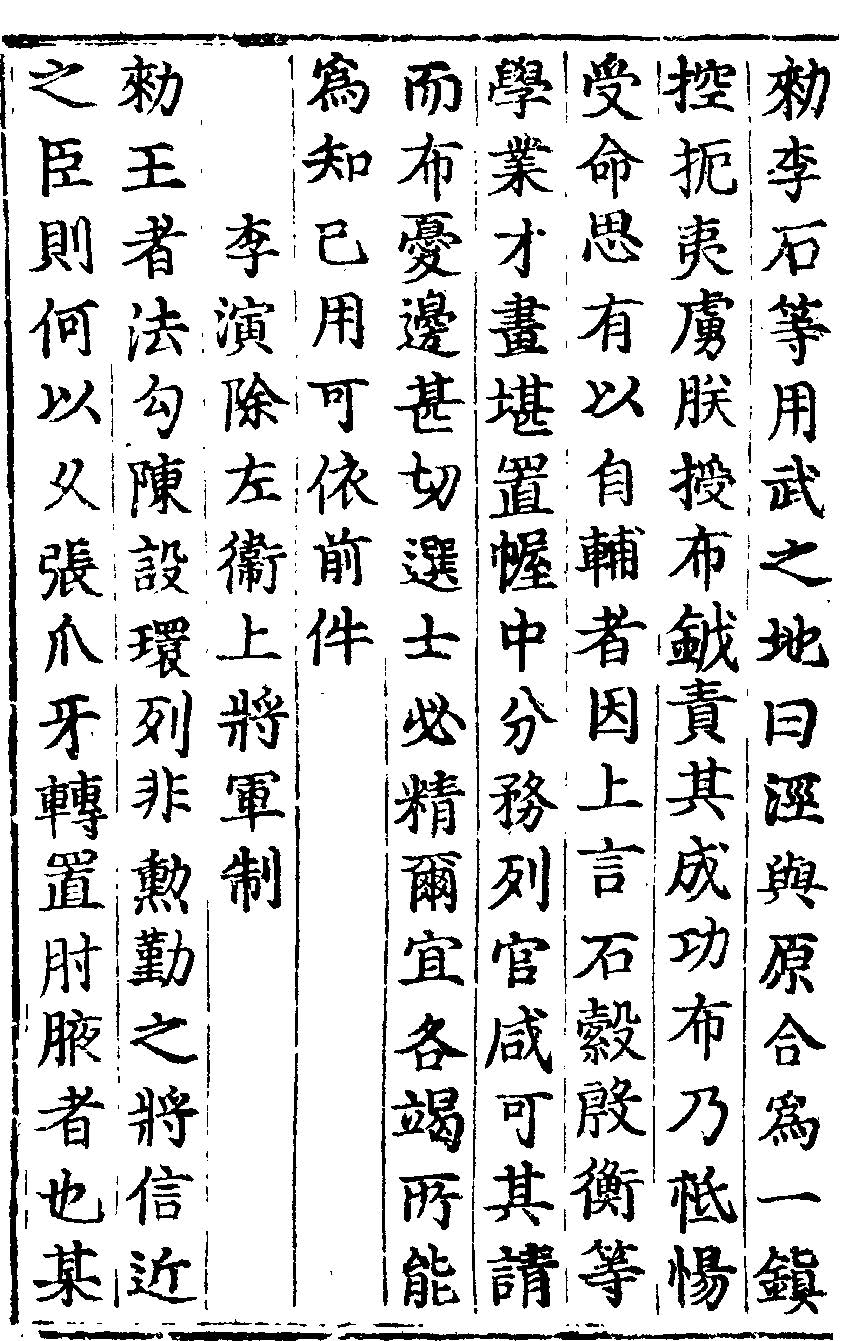 勑李石等用武之地曰涇與原合爲一鎮
控扼夷虜朕授布鉞責其成功布乃怟惕
受命思有以自輔者因上言石縠殷衡等
學業才畫堪置幄中分務列官咸可其請
而布憂邊甚切選士必精爾宜各竭所能
爲知已用可依前件
李演除左衞上將軍制
勑王者法勾陳設環列非勲勤之將信近
之臣則何以久張爪牙轉置肘腋者也某